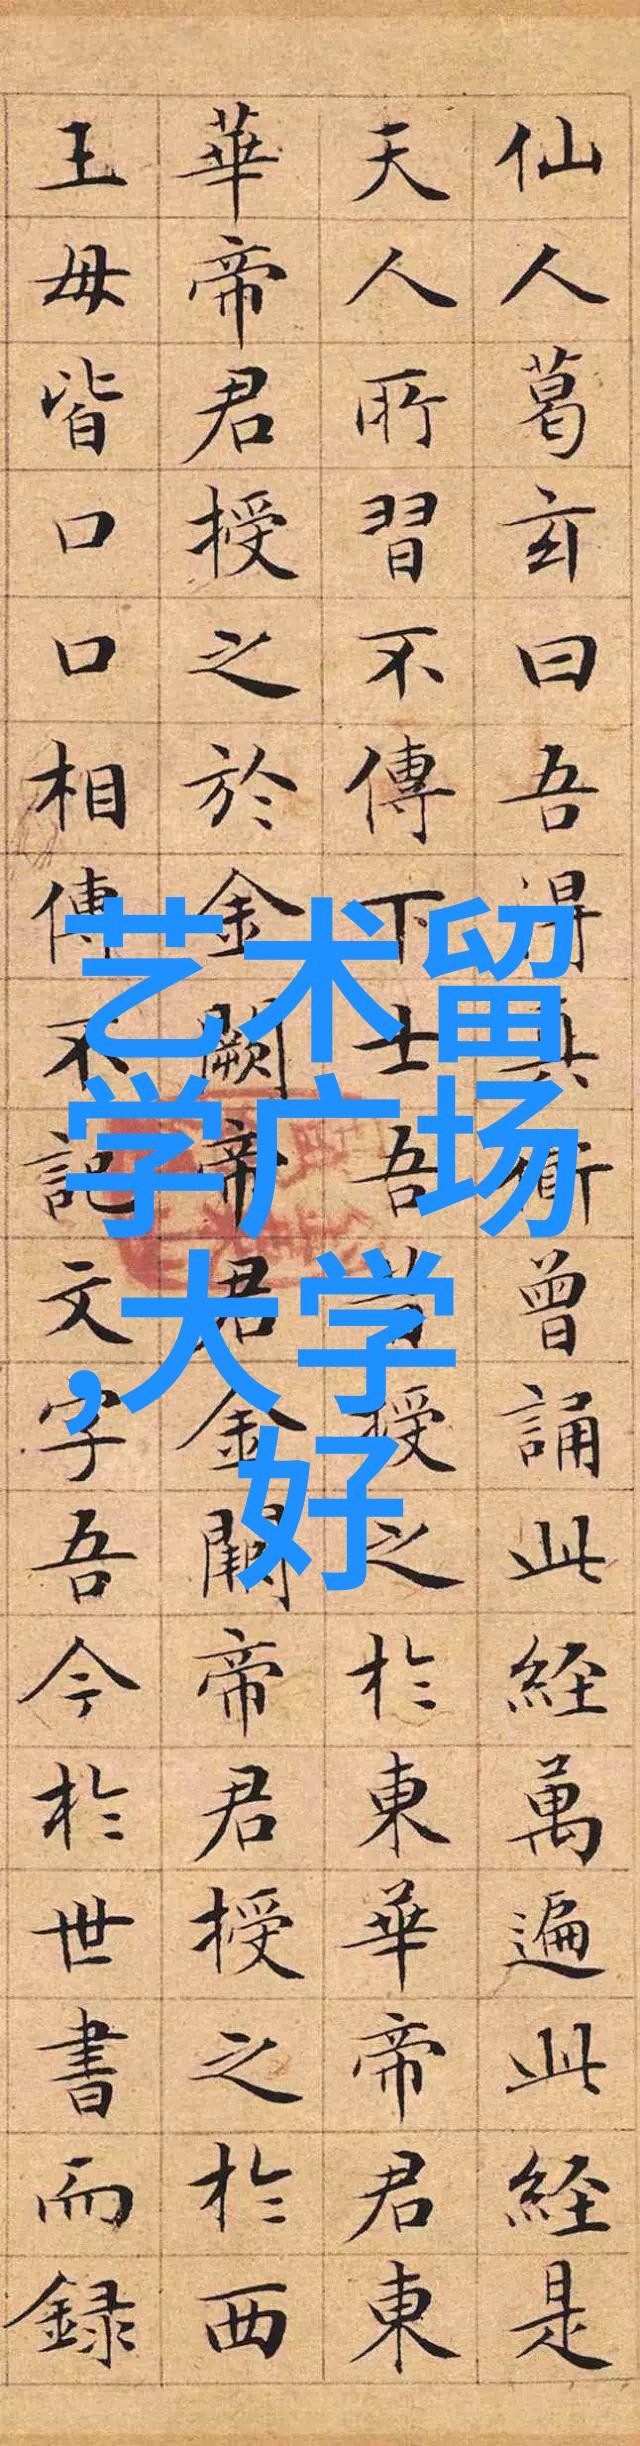 仙人葛玄曰吾得真術曾誦此経萬遍此経是
天人所習不傳下士吾昔授之於東華帝君東
華帝君授之於金闕帝君金闕帝君授之於西
王母皆口口相傳不記文字吾今於世書而録
艺术留
学广场
,大学
好